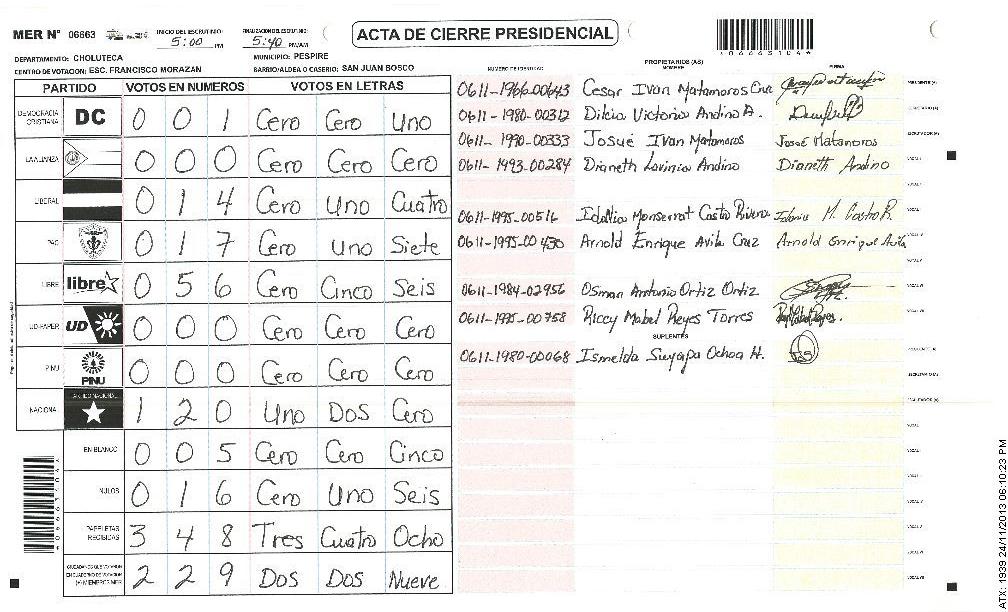 MER N° 06663 INICIO DEL ESCRUTINIO: 5:00 PM FINALIZACION DEL ESCRUTINIO: 5:40 PM/AM ACTA DE CIERRE PRESIDENCIAL *06663104*
DEPARTAMENTO: CHOLUTECA MUNICIPIO: PESPIRE
CENTRO DE VOTACION: ESC. FRANCISCO MORAZAN BARRIO/ALDEA O CASERIO: SAN JUAN BOSCO
PARTIDO VOTOS EN NUMEROS VOTOS EN LETRAS NUMERO DE IDENTIDAD PROPIETARIOS (AS) NOMBRE FIRMA
DEMOCRACIA CRISTIANA DC 0 0 1 Cero Cero Uno
LA ALIANZA 0 0 0 Cero Cero Cero
LIBERAL 0 1 4 Cero Uno Cuatro
PAC 0 1 7 Cero Uno Siete
LIBRE libre 0 5 6 Cero Cinco Seis
UD-FAPER UD 0 0 0 Cero Cero Cero
PINU PINU 0 0 0 Cero Cero Cero
NACIONAL PARTIDO NACIONAL 1 2 0 Uno Dos Cero
EN BLANCO 0 0 5 Cero Cero Cinco
NULOS 0 1 6 Cero Uno Seis
PAPELETAS RECIBIDAS 3 4 8 Tres Cuatro Ocho
CIUDADANOS QUE VOTARON EN CUADERNO DE VOTACION (+) MIEMBROS MER 2 2 9 Dos Dos Nueve
0611-1966-00643 Cesar Ivan Matamoros Cruz PRESIDENTE (A)
0611-1980-00312 Dilcia Victoria Andino A. SECRETARIO (A)
0611-1990-00333 Josué Ivan Matamoros Josué Matamoros ESCRUTADOR (A)
0611-1993-00284 Dianeth Lavinia Andino Dianeth Andino VOCAL I
0611-1995-00516 Idallia Monserrat Castro Rivera M. Castro R.
0611-1995-00430 Arnold Enrique Avila Cruz Arnold Enrique Avila
0611-1984-02956 Osman Antonio Ortiz Ortiz
0611-1995-00758 Riccy Mabel Reyes Torres
SUPLENTES
0611-1980-00068 Ismelda Suyapa Ochoa H.
ATX: 1939 24/11/2013 06:10:23 PM